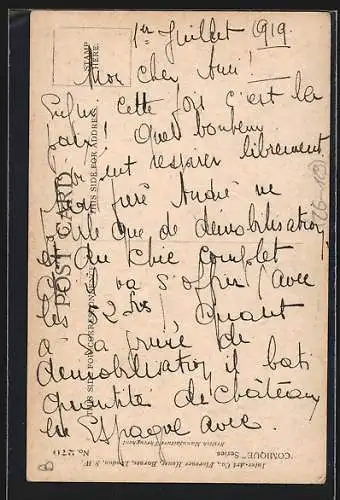 1er Juillet 1919
Mon cher Ami!
Enfin cette fois c'est la
paix! Quel bonheur
respirer librement
juré André ne
parle que de démobilisation
chic complet
va s'offrir (avec
les 52 frs), Quant
à la prime de
démobilisation il bâti
quantité de Château
en Espagne avec.
STAMP
HERE.
POST CARD
THIS SIDE FOR ADDRESS.
THIS SIDE FOR CORRESPONDENCE
"COMIQUE" Series
No. 270
Inter-Art Co., Florence House, Barnes, London, S.W.
British Manufacture Throughout